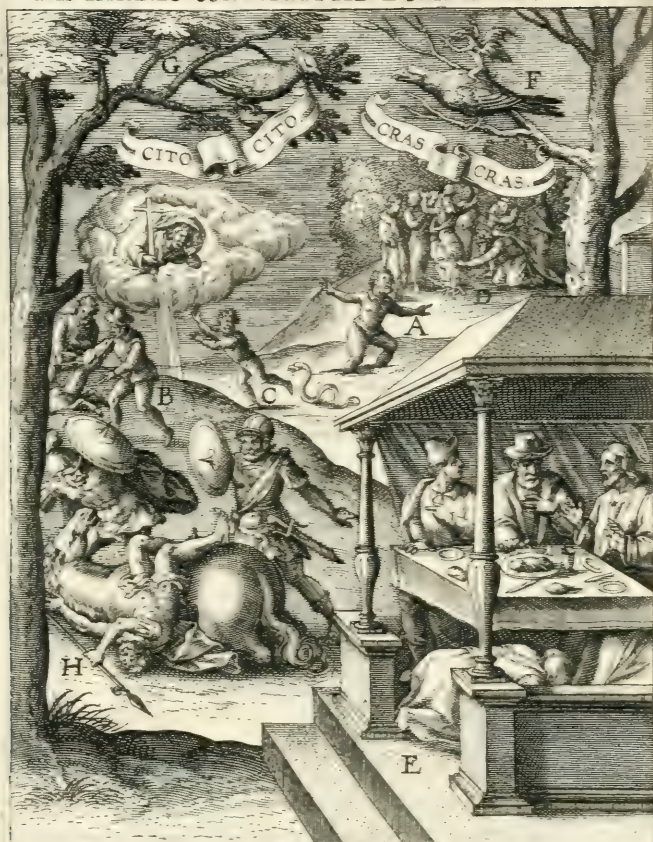 G
F
CITO CITO
CRAS CRAS.
A
D
B
C
H
E